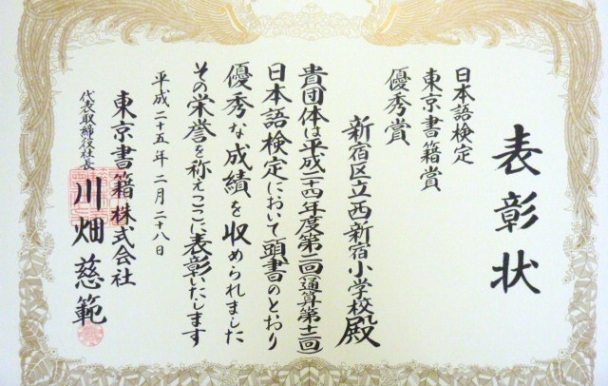 表彰状
日本語検定
東京書籍賞
優秀賞
新宿区立西新宿小学校殿
貴団体は平成二十四年度第二回(通算第十二回)
日本語検定において頭書のとおり
優秀な成績を収められました
その栄誉を称えここに表彰いたします
平成二十五年二月二十八日
東京書籍株式会社
代表取締役社長
川畑慈範